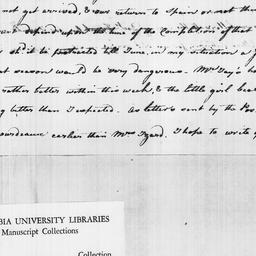 not yet arrived, & our return to Spain or not the
depend upon the time of the Completion of that
sh'd it be protracted till June, in my situation a J
season wou'd be very dangerous. Mrs Jay's he
rather better within this week, & the little girl bea
better than I expected. As letters sent by the Pos
earlier than Mrs Izard. I hope to write y
BIA UNIVERSITY LIBRARIES
Manuscript Collections
Collection